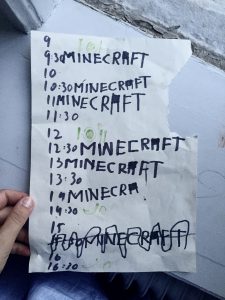 9
9:30 MINECRAFT
10
10:30 MINECRAFT
11 MINECRAFT
11:30
12
12:30 MINECRAFT
13 MINECRAFT
13:30
14 MINECRA
14:30
15
MINECRAFT
16
16:30